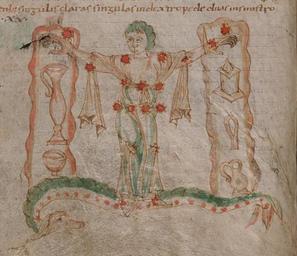 singulas claras singulas in dextro pede duas in sinistro
.xx.